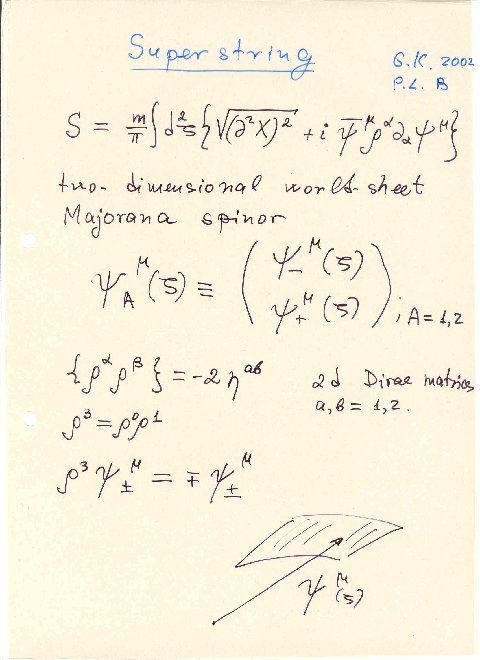 Superstring
G.K. 2002
P.L. B
S = m/π ∫d²ξ{√(∂²X)² + i ψ̄^μ ρ^α ∂_α ψ^μ}
two-dimensional world-sheet
Majorana spinor
ψ_A^μ(ξ) ≡ (ψ_-^μ(ξ) ψ_+^μ(ξ)) ; A = 1,2
{ρ^α ρ^β} = -2 η^{ab} 2d Dirac matrices
a,b = 1,2.
ρ³ = ρ⁰ρ¹
ρ³ ψ_±^μ = ∓ ψ_±^μ
ψ^μ(ξ)